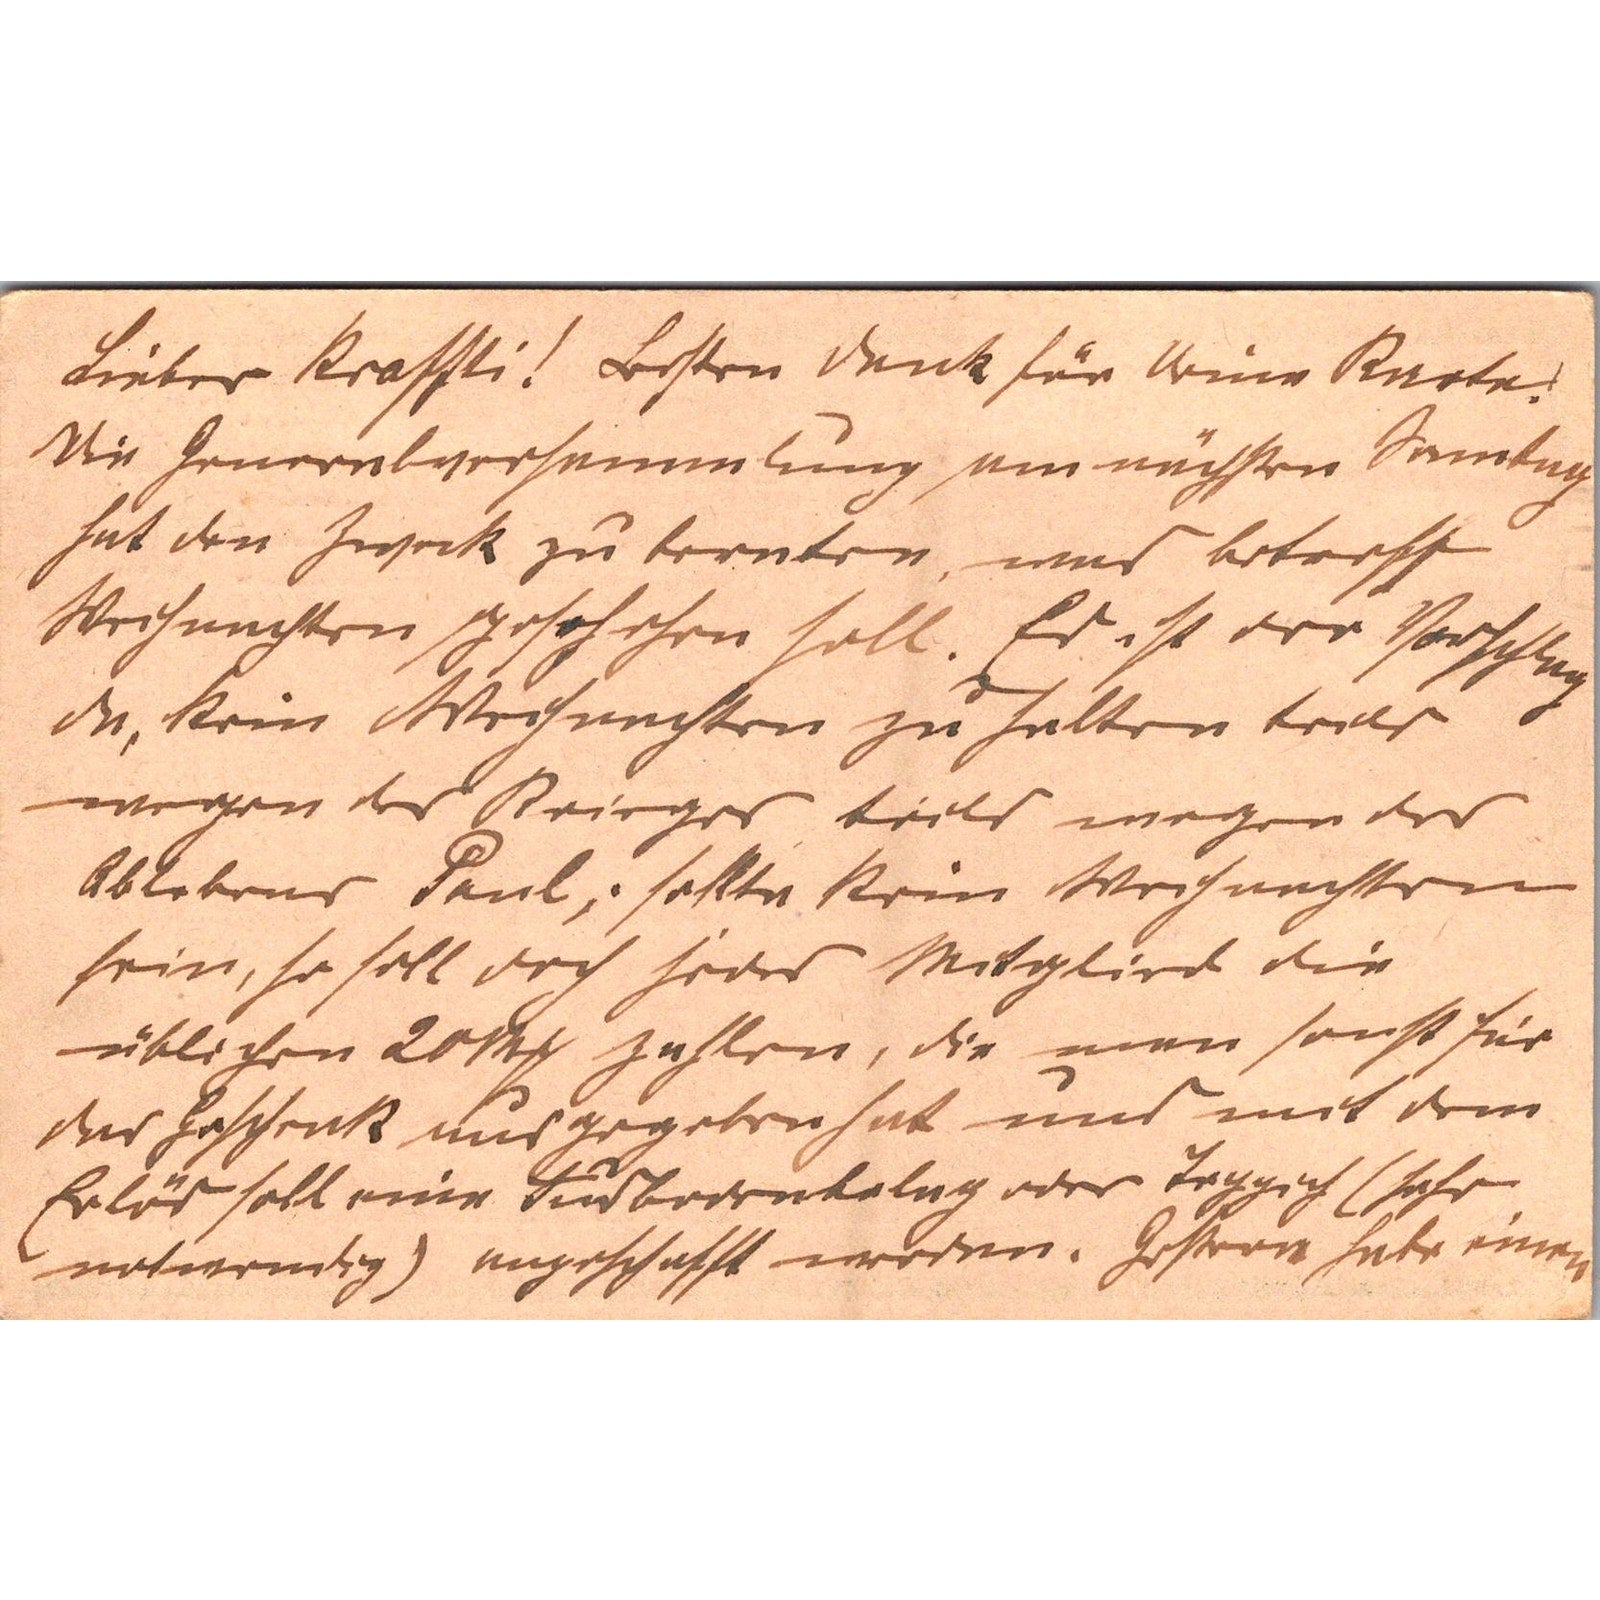 Lieber Kraffti! Besten Dank für Deine Karte!
Die Generalversammlung am nächsten Samstag
hat den Zweck zu beraten, was betreff
Weihnachten geschehen soll. Es ist der Vorschlag
da, kein Weihnachten zu halten teils
wegen des Krieges teils wegen des
Ablebens Paul; sollte kein Weihnachten
sein, so soll doch jedes Mitglied die
üblichen 20 Mk zahlen, die man sonst für
das Geschenk ausgegeben hat und mit dem
Erlös soll eine Fußbodenbelag oder Teppich (sehr
notwendig) angeschafft werden. Gestern habe einen